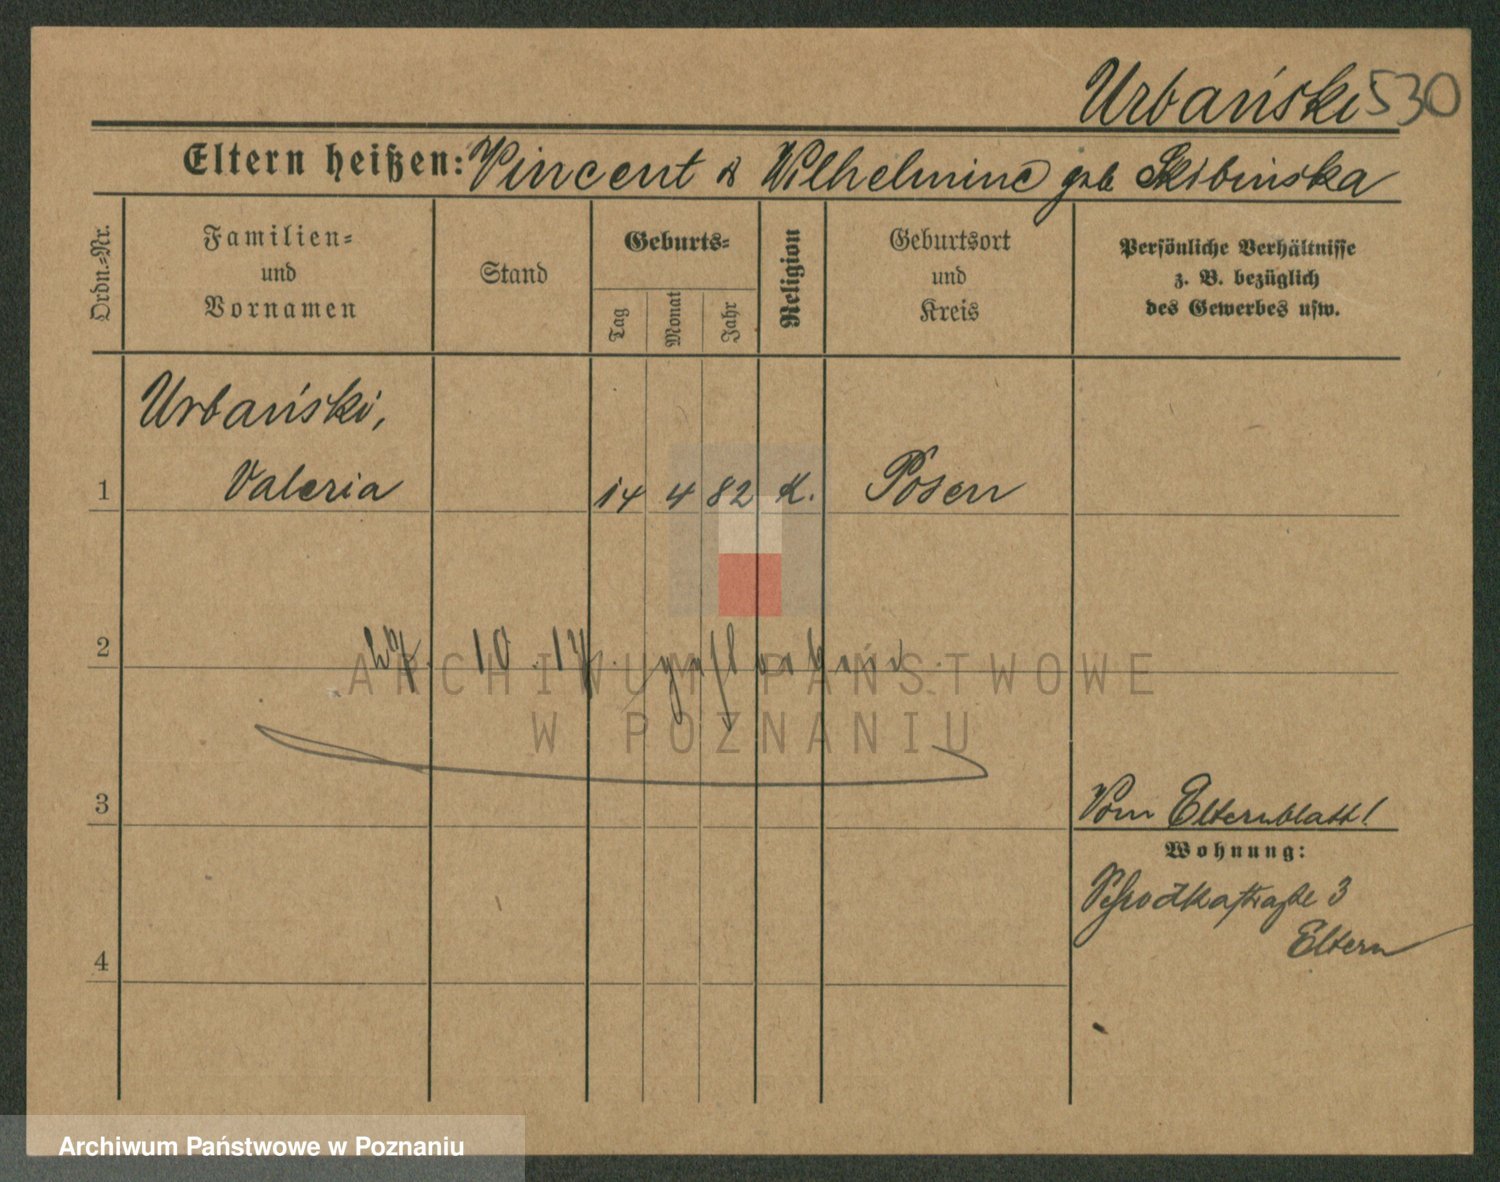 Urbański 530
Eltern heißen: Vincent & Wilhelmine geb. Skibinska
Ordn.-Nr.
Familien-
und
Vornamen
Stand
Geburts-
Tag
Monat
Jahr
Religion
Geburtsort
und
Kreis
Persönliche Verhältnisse
z. B. bezüglich
des Gewerbes usw.
Urbański,
1 Valeria 14 4 82 K. Posen
2 27. 10. 17. gestorben.
3
Vom Elternblatt!
Wohnung:
Schrodkastraße 3
Eltern
4
ARCHIWUM PAŃSTWOWE
W POZNANIU
Archiwum Państwowe w Poznaniu